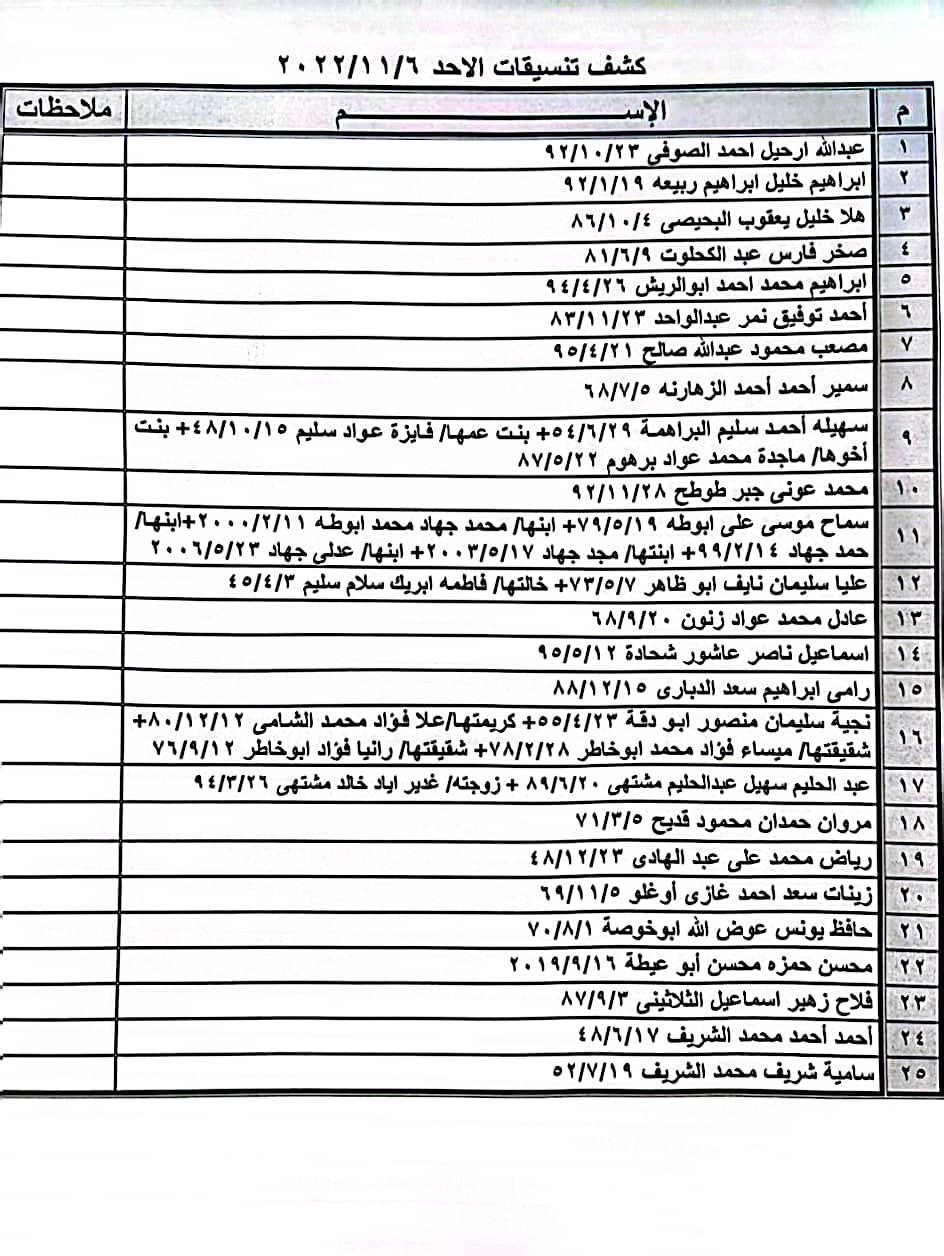 كشف تنسيقات الاحد ٢٠٢٢/١١/٦
م الإســــــــــــم ملاحظات
١ عبدالله ارحيل احمد الصوفى ٩٢/١٠/٢٣
٢ ابراهيم خليل ابراهيم ربيعه ٩٢/١/١٩
٣ هلا خليل يعقوب البحيصى ٨٦/١٠/٤
٤ صخر فارس عبد الكحلوت ٨١/٦/٩
٥ ابراهيم محمد احمد ابوالريش ٩٤/٤/٢٦
٦ أحمد توفيق نمر عبدالواحد ٨٣/١١/٢٣
٧ مصعب محمود عبدالله صالح ٩٥/٤/٢١
٨ سمير أحمد أحمد الزهارنه ٦٨/٧/٥
٩ سهيله أحمد سليم البراهمة ٥٤/٦/٢٩+ بنت عمها/ فايزة عواد سليم ٤٨/١٠/١٥+ بنت
أخوها/ ماجدة محمد عواد برهوم ٨٧/٥/٢٢
١٠ محمد عونى جبر طوطح ٩٢/١١/٢٨
١١ سماح موسى على ابوطه ٧٩/٥/١٩+ ابنها/ محمد جهاد محمد ابوطه ٢٠٠٠/٢/١١+ابنها/
حمد جهاد ٩٩/٢/١٤+ ابنتها/ مجد جهاد ٢٠٠٣/٥/١٧+ ابنها/ عدلى جهاد ٢٠٠٦/٥/٢٣
١٢ عليا سليمان نايف ابو ظاهر ٧٣/٥/٧+ خالتها/ فاطمه ابريك سلام سليم ٤٥/٤/٣
١٣ عادل محمد عواد زنون ٦٨/٩/٢٠
١٤ اسماعيل ناصر عاشور شحادة ٩٥/٥/١٢
١٥ رامى ابراهيم سعد الدبارى ٨٨/١٢/١٥
١٦ نجية سليمان منصور ابو دقة ٥٥/٤/٢٣+ كريمتها/علا فؤاد محمد الشامى ٨٠/١٢/١٢+
شقيقتها/ ميساء فؤاد محمد ابوخاطر ٧٨/٢/٢٨+ شقيقتها/ رانيا فؤاد ابوخاطر ٧٦/٩/١٢
١٧ عبد الحليم سهيل عبدالحليم مشتهى ٨٩/٦/٢٠ + زوجته/ غدير اياد خالد مشتهى ٩٤/٣/٢٦
١٨ مروان حمدان محمود قديح ٧١/٣/٥
١٩ رياض محمد على عبد الهادى ٤٨/١٢/٢٣
٢٠ زينات سعد احمد غازى أوغلو ٦٩/١١/٥
٢١ حافظ يونس عوض الله ابوخوصة ٧٠/٨/١
٢٢ محسن حمزه محسن أبو عيطة ٢٠١٩/٩/١٦
٢٣ فلاح زهير اسماعيل الثلاثينى ٨٧/٩/٣
٢٤ أحمد أحمد محمد الشريف ٤٨/٦/١٧
٢٥ سامية شريف محمد الشريف ٥٢/٧/١٩